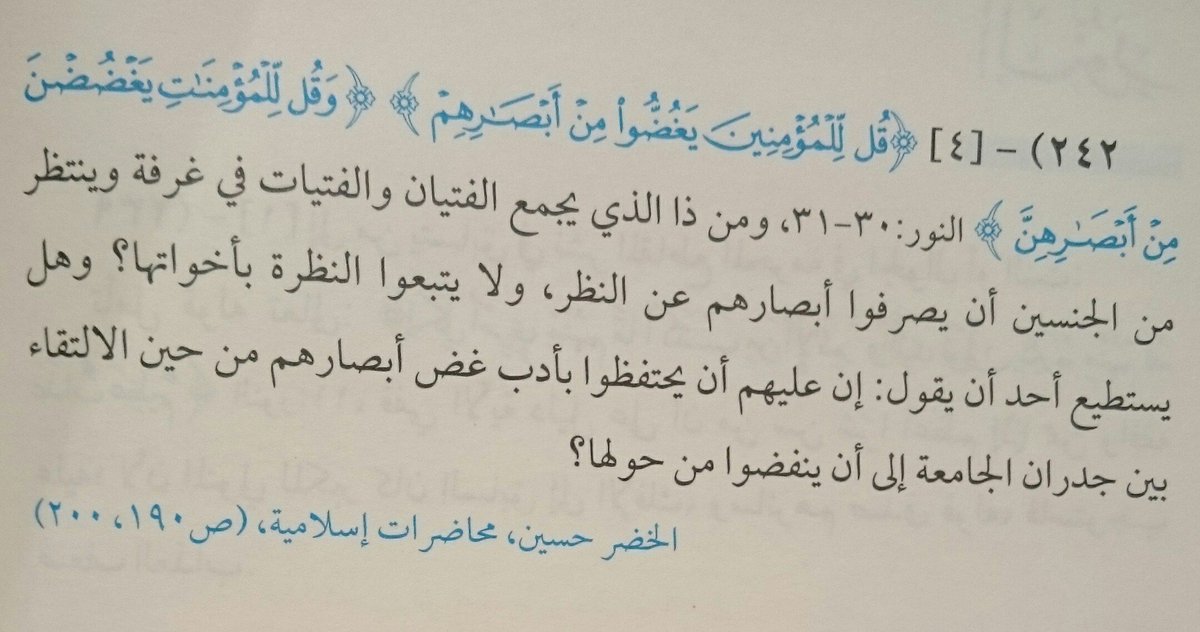 ٢٤٢) - [٤] ﴿قُل لِّلْمُؤْمِنِينَ يَغُضُّوا۟ مِنْ أَبْصَـٰرِهِمْ﴾ ﴿وَقُل لِّلْمُؤْمِنَـٰتِ يَغْضُضْنَ
مِنْ أَبْصَـٰرِهِنَّ﴾ النور: ٣٠-٣١، ومن ذا الذي يجمع الفتيان والفتيات في غرفة وينتظر
من الجنسين أن يصرفوا أبصارهم عن النظر، ولا يتبعوا النظرة بأخواتها؟ وهل
يستطيع أحد أن يقول: إن عليهم أن يحتفظوا بأدب غض أبصارهم من حين الالتقاء
بين جدران الجامعة إلى أن ينفضوا من حولها؟
الخضر حسين، محاضرات إسلامية، (ص١٩٠، ٢٠٠)